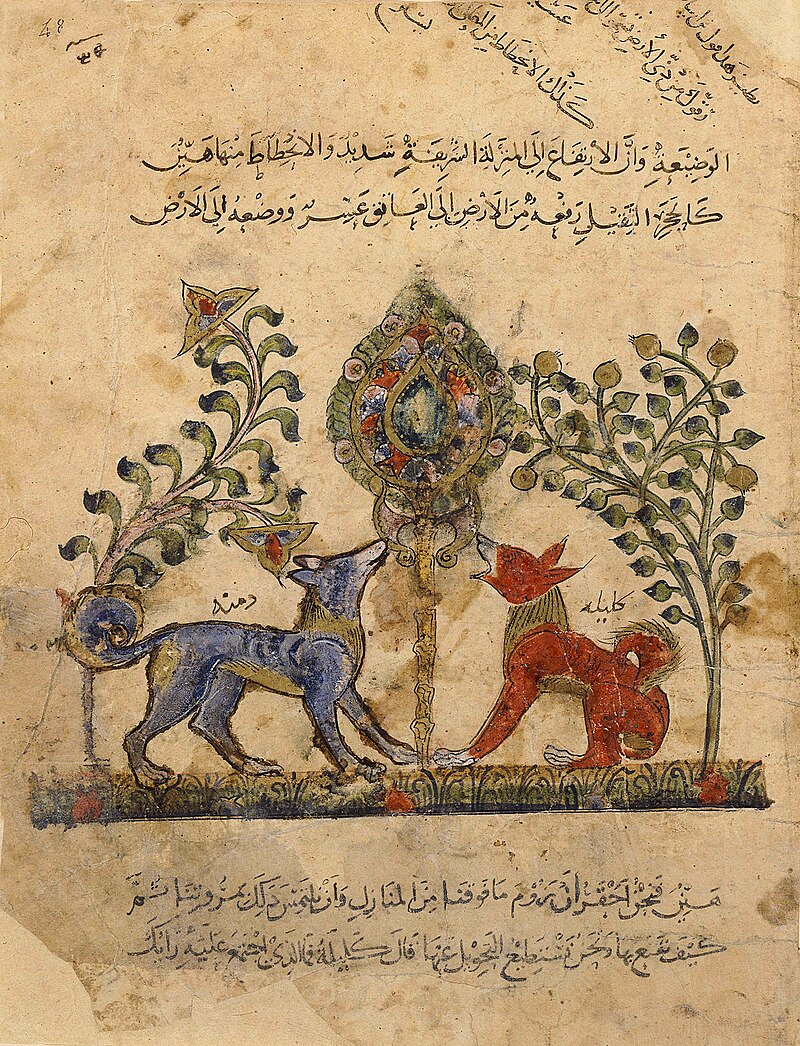 48
كذلك الانحطاط من
الوضيعة وان الارتفاع الى المنزلة الشريفة شديد والانحطاط منها هين
كالحجر الثقيل رفعه من الارض الى العاتق عسر ووضعه الى الارض
دمنه
كليله
هين فنحن احق ان نروم ما فوقنا من المنازل وان نلتمس ذلك بمروتنا ثم
كيف نقنع بها ونحن نستطيع التحويل عنها قال كليلة فما الذي اجتمع عليه رايك